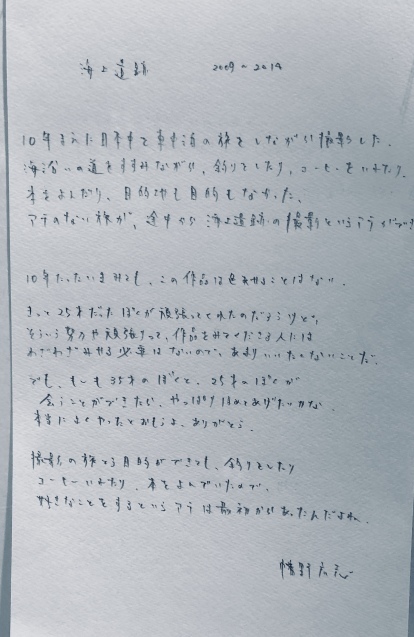 海上遺跡 2009〜2019
10年まえに日本中を車中泊の旅をしながら撮影した。
海沿いの道をすすみながら、釣りをしたり、コーヒーをいれたり、
本をよんだり、目的地も目的もなかった。
アテのない旅が、途中から海上遺跡の撮影というアテが
10年たったいまみても、この作品は色あせることはない。
きっと25才だったぼくが頑張ってくれたのだろうけど、
そういう努力や頑張りって、作品をみてくださる人には
わざわざみせる必要はないので、あまりいいたくないことだ。
でも、もしも35才のぼくと、25才のぼくが
会うことができたら、やっぱりほめてあげたいかな。
本当によくやったとおもうよ、ありがとう。
撮影の旅する目的ができても、釣りをしたり
コーヒーいれたり、本をよんでいたので、
好きなことをするというアテは最初からあったんだよね。
幡野広志